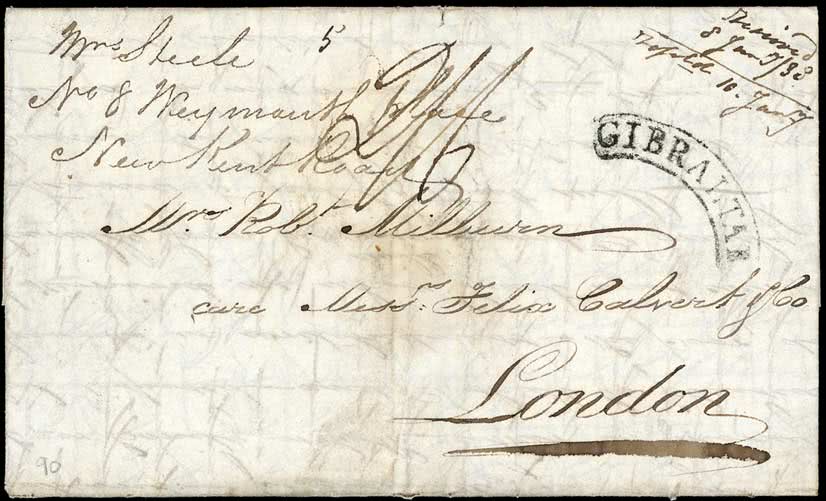 Mrs Steele 5
No 8 Weymouth Place
New Kent Road
Mr. Robt. Milburn
care Messrs. Felix Calvert & Co
London
GIBRALTAR
8 Jany
10. Jany
90